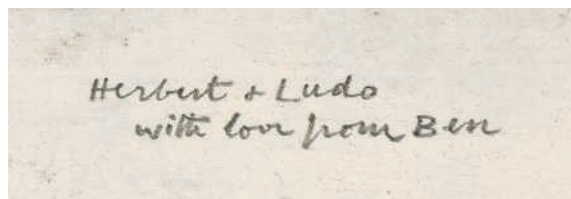 Herbert + Ludo
with love from Ben